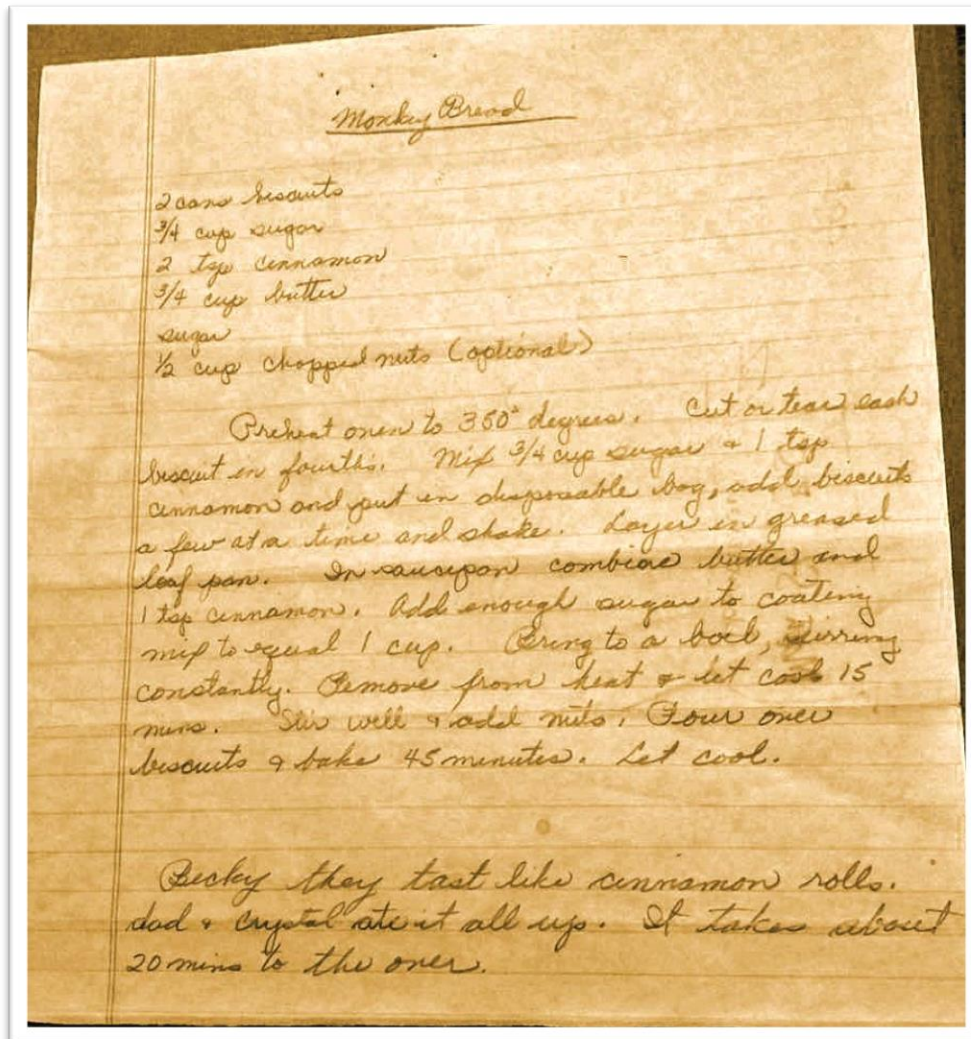 Monkey Bread
2 cans biscuits
3/4 cup sugar
2 tsp cinnamon
3/4 cup butter
sugar
1/2 cup chopped nuts (optional)
Preheat oven to 350° degrees. Cut or tear each
biscuit in fourths. Mix 3/4 cup sugar & 1 tsp
cinnamon and put in disposable bag, add biscuits
a few at a time and shake. Layer in greased
loaf pan. In saucepan combine butter and
1 tsp cinnamon. Add enough sugar to coating
mix to equal 1 cup. Bring to a boil, stirring
constantly. Remove from heat & let cool 15
mins. Stir well & add nuts. Pour over
biscuits & bake 45 minutes. Let cool.
Becky they tast like cinnamon rolls.
dad & crystal ate it all up. It takes about
20 mins to the oven.